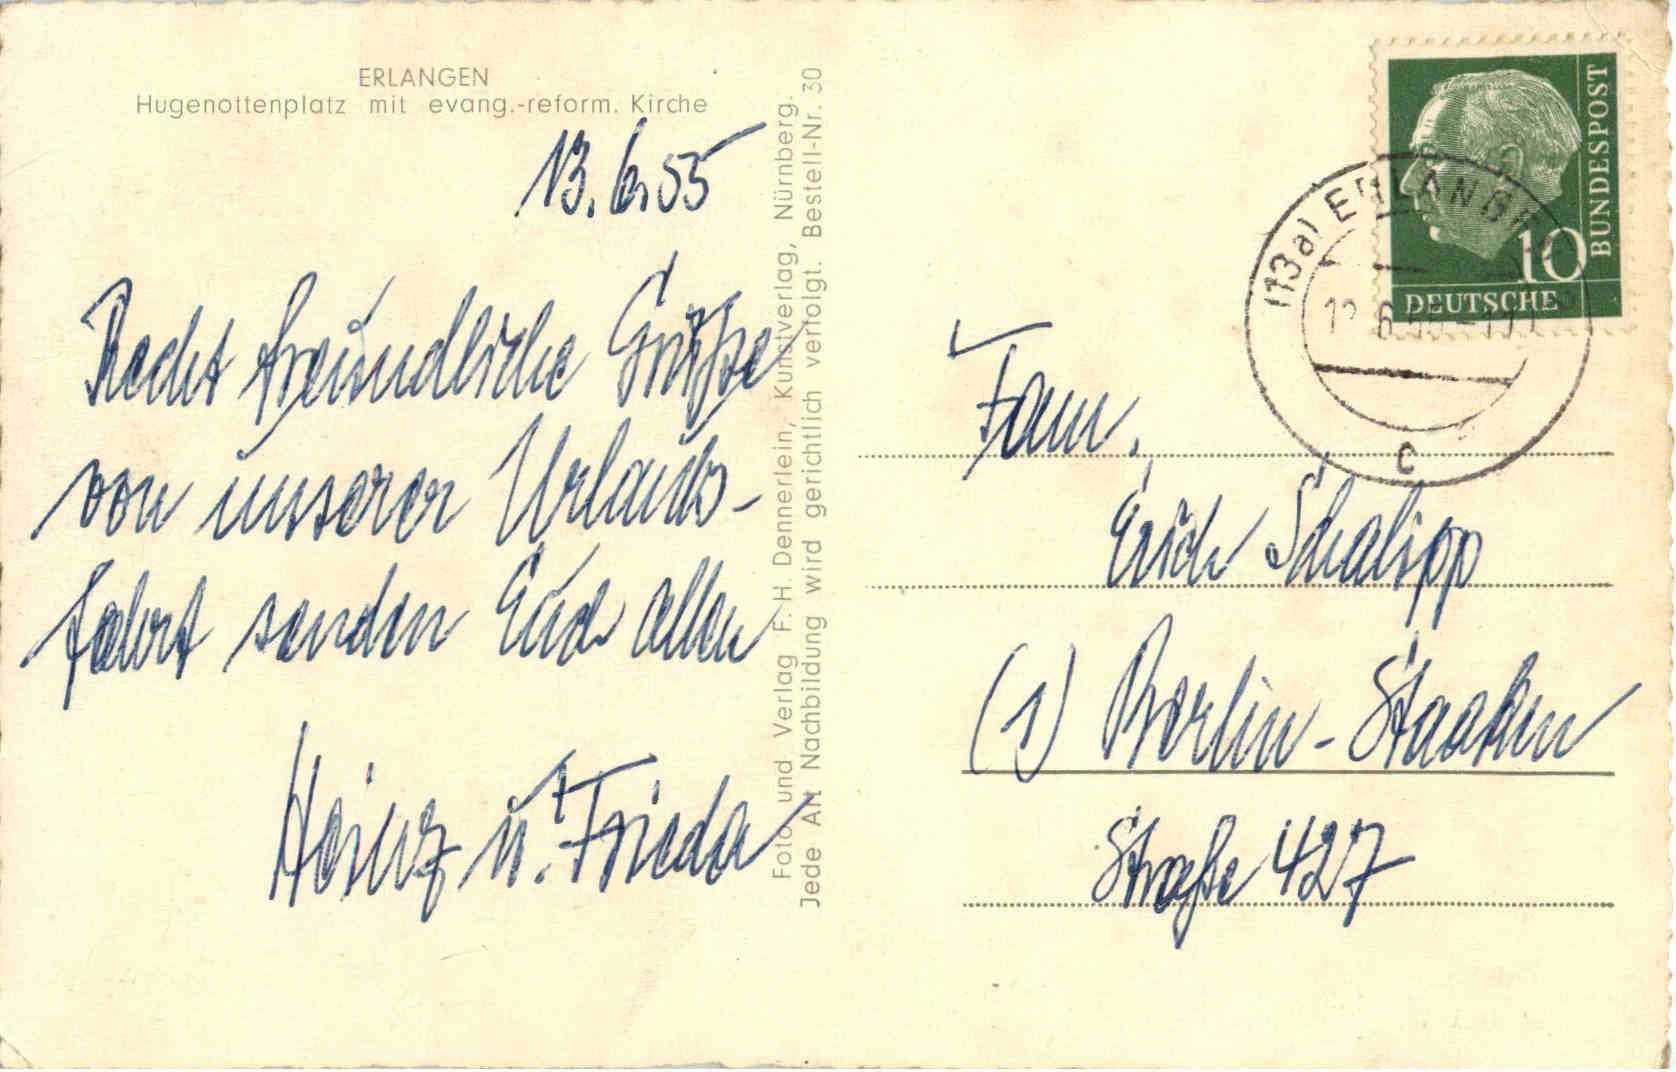 ERLANGEN
Hugenottenplatz mit evang.-reform. Kirche
13.6.55
Recht freundliche Grüße
von unserer Urlaubs-
fahrt senden Euch allen
Heinz u. Frieda
Foto und Verlag F. H. Dennerlein, Kunstverlag, Nürnberg.
Jede Art Nachbildung wird gerichtlich verfolgt. Bestell-Nr. 30
BUNDESPOST
10
DEUTSCHE
(13a) ERLANGEN
c
Fam.
Erich Schalipp
(1) Berlin-Staaken
Straße 427